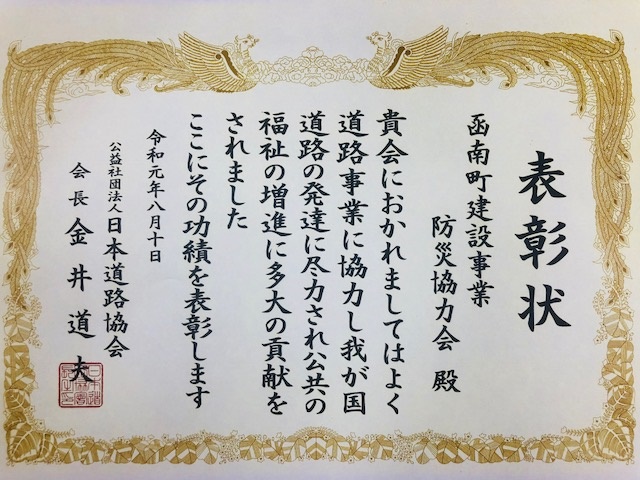 表彰状
函南町建設事業
防災協力会 殿
貴会におかれましてはよく
道路事業に協力し我が国
道路の発達に尽力され公共の
福祉の増進に多大の貢献を
されました
ここにその功績を表彰します
令和元年八月十日
公益社団法人日本道路協会
会長 金井道夫